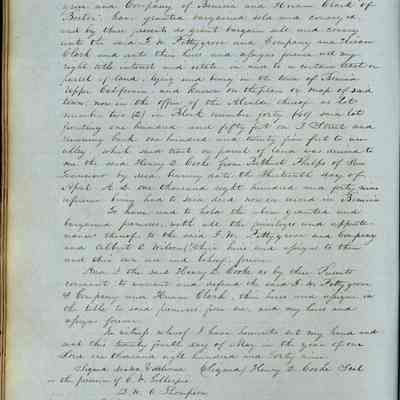 and Company of Benicia and Hiram Clark of
Boston, have granted bargained sold and conveyed
and by these presents do grant bargain sell and convey
unto the said F. W. Pettygrove and Company and Hiram
Clark and unto their heirs and assigns forever all my
right title interest and estate in and to a certain lot or
parcel of land, lying and being in the town of Benicia
Upper California, and known on the plan or map of said
town, now in the office of the Alcalde thereof as lot
number two (2) in Block number forty (40) said lot
fronting one hundred and fifty feet on I Street and
running back one hundred and thirty five feet to an
alley, which said tract or parcel of land was deeded to
me the said Henry D. Cooke from Pethuel Phelps of San
Francisco by deed bearing date the thirteenth day of
April A.D. one thousand eight hundred and forty nine
reference being had to said deed now on record in Benicia
To have and to hold the above granted and
bargained premises, with all the privileges and appurte-
nances thereof, to the said F. W. Pettygrove and Company
and Albert C. Wilson their heirs and assigns to them
and their own use and behoof forever.
And I the said Henry D. Cooke do by these Presents
covenant to warrant and defend the said F. W. Pettygrove
& Company and Hiram Clark, their heirs and assigns in
the title to said premises from me and my heirs and
assigns forever.
In witness whereof I have hereunto set my hand and
seal this twenty fourth day of May in the year of our
Lord one thousand eight hundred and forty nine.
Signed Sealed & delivered (Signed) Henry D. Cooke Seal
in the presence of C. V. Gillespie
C. Thompson